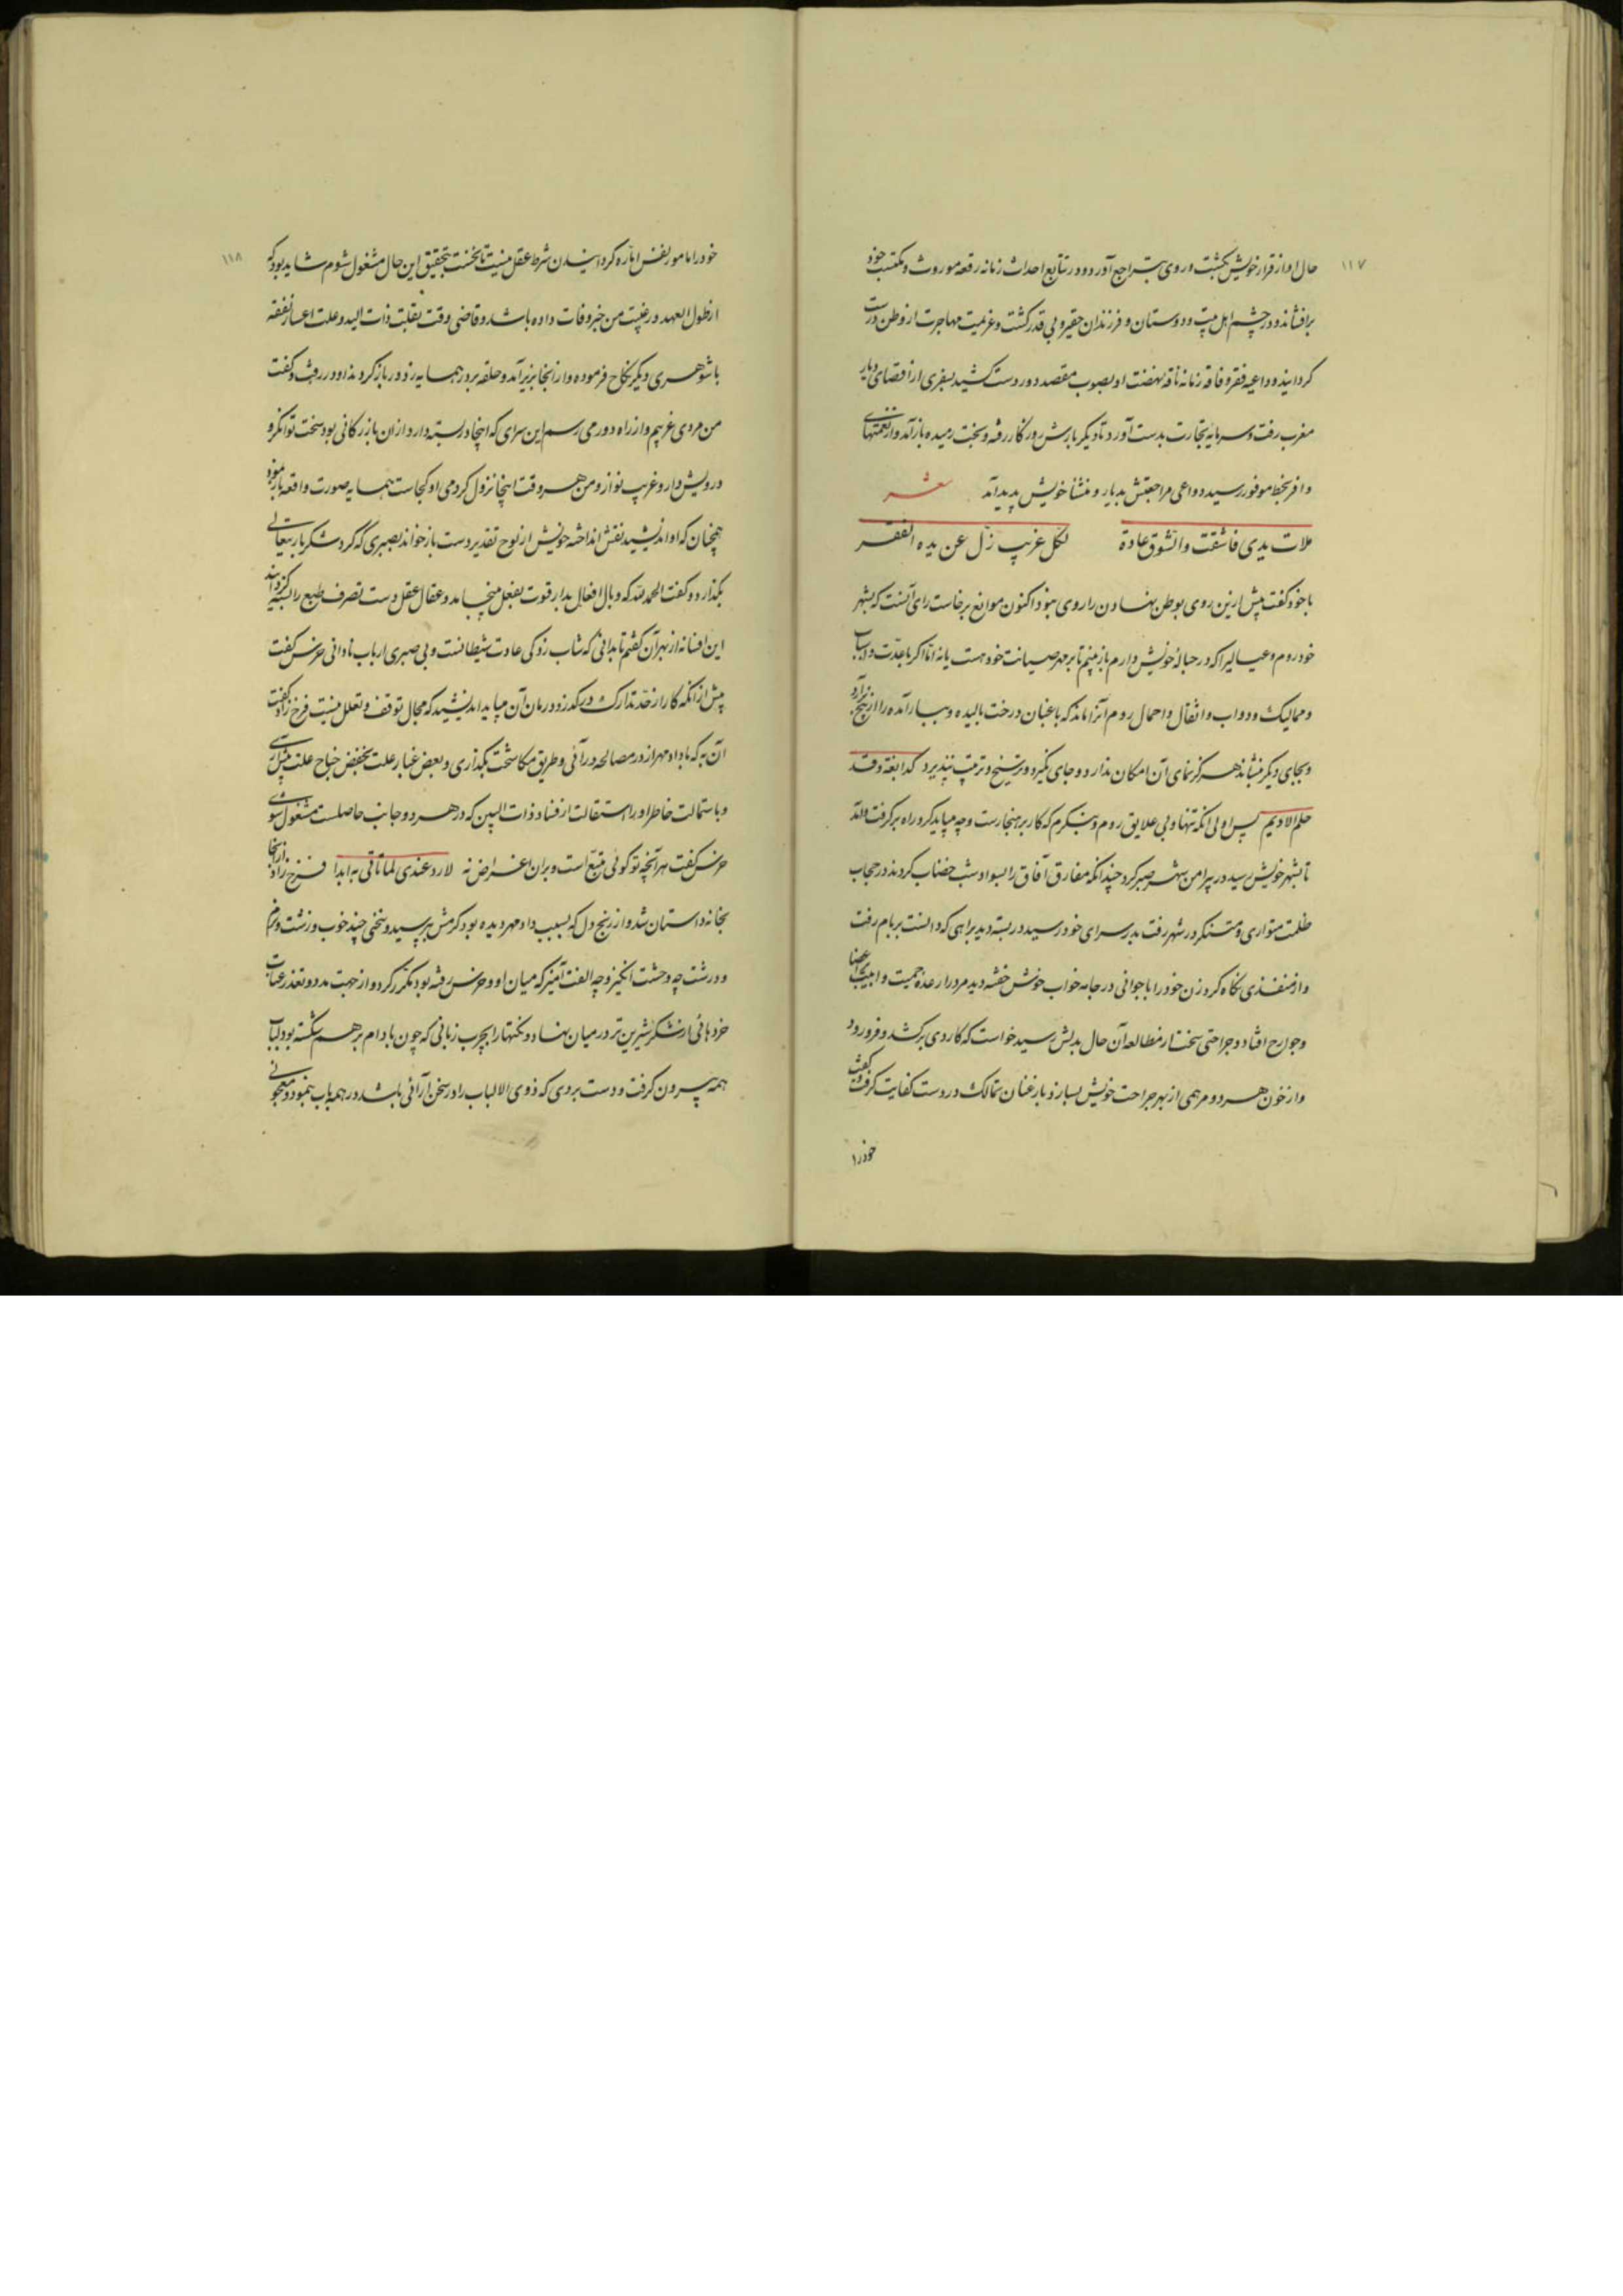 ۱۱۷
حال او از قرار خویش بگشت و روی بتراجع آورد و در تتابع احداث زمانه رقعه موروث و مکتسب خود
برافشاند و در چشم اهل بیت و دوستان و فرزندان حقیر و بی قدر گشت و عزیمت مهاجرت از وطن درست
گردانید و داعیه فقر و فاقه زمانه ناقه نهضت او بصوب مقصد دور دست کشید بسفری از اقصای دیار
مغرب رفت و سرمایه تجارت بدست آورد تا دیگر بارش روزگار رفته و بخت رمیده باز آمد و از نعمتهای
وافر بحظ موفور رسید دواعی مراجعتش بدیار و منشأ خویش پدید آمد شعر
ملات یدی فاشقت والشوق عادة لکل غریب زل عن یده الفقر
با خود گفت پیش ازین روی بوطن نهادن را روی نبود اکنون موانع برخاست رای آنست که بشهر
خود روم و عیالیرا که در حباله خویش دارم باز بینم تا بر مهر صیانت خود هست یا نه اما اگر با عدت و اسباب
و ممالیک و دواب و اثقال و احمال روم آنرا ماند که باغبان درخت بالیده و ببار آمده را از بیخ برآرد
و بجای دیگر نشاند هرگز نمای آن امکان ندارد و جای نگیرد و ترشیح و تربیت نپذیرد کدابغة و قد
حلم الادیم پس اولی آنکه تنها و بی علایق روم و بنگرم که کار بر چه هنجارست و چه میباید کرد راه برگرفت و آمد
تا بشهر خویش رسید در پیرامن شهر صبر کرد چندانکه مفارق آفاق را بسواد شب خضاب کردند در حجاب
ظلمت متواری و متنکر در شهر رفت بدر سرای خود رسید در بسته دید براهی که دانست بربام رفت
و از منفذی نگاه کرد زن خود را با جوانی در جامه خواب خوش خفته دید مرد را رعده حمیت و ابیت بر اعضا
و جوارح افتاد و جراحتی سخت از مطالعه آن حال بدلش رسید خواست که کاردی برکشد و فرو رود
و از خون هر دو مرهمی از بهر جراحت خویش بسازد باز عنان تمالک در دست کفایت گرفت و گفت
خود را
۱۱۸
خود را مامور نفس اماره گردانیدن شرط عقل نیست تا نخست بتحقیق این حال مشغول شوم شاید بود که
از طول العهد در غیبت من خبر وفات داده باشند و قاضی وقت بقلت ذات الید و علت اعسار نفقه
با شوهری دیگر نکاح فرموده و از آنجا بزیر آمد و حلقه بر در همسایه زد و در باز کردند او در رفت و گفت
من مردی غریبم و از راه دور می رسم این سرای که اینجا در بسته دارد از آن بازرگانی بود سخت توانگر و
درویش دار و غریب نواز و من هر وقت اینجا نزول کردمی او کجاست همسایه صورت واقعه باز نمود
همچنان که او اندیشید نقش انداخته خویش از لوح تقدیر درست باز خواند بصبری که کرد شکر باری تعالی
بگذارد و گفت الحمد لله که وبال افعال بد از قوت بفعل نینجامید و عقال عقل دست تصرف طبع را بسته گردانید
این افسانه از بهر آن گفتم تا بدانی که شتاب زدگی عادت شیطانست و بی صبری از باب نادانی خرس گفت
پیش از آنکه کار از حد تدارک درگذرد درمان آن میباید اندیشید که مجال توقف و تعلل نیست فرخ زاد گفت
آن به که با دادمهر از در مصالحه درآئی و طریق مکاشحت بگذاری و بعض غبار علت بخفض جناح علت پیش آیی
و باستمالت خاطر او و استقالت از فساد ذات البین که در هر دو جانب حاصلست مشغول شوی
خرس گفت هر آنچه تو گوئی متبع است و بر آن اعتراض نه لا رد عندی لما تأتی به ابدا فرخ زاد از آنجا
بخانه داستان شد و از رنج دل که بسبب دادمهر دیده بود گرمش بپرسید و سخنی چند خوب و زشت و نرم
و درشت چه وحشت انگیز و چه الفت آمیز که میان او و خرس رفته بود مکرر کرد و از جهت مدد و تعذر عتاب
خرد هائی از شکر شیرین تر در میان نهاد و نکتها را بچرب زبانی که چون بادام بر هم شکسته بود لباب
همه بیرون گرفت و دست بردی که ذوی الالباب را در سخن آرائی باشد در همه باب بنمود و معجونی